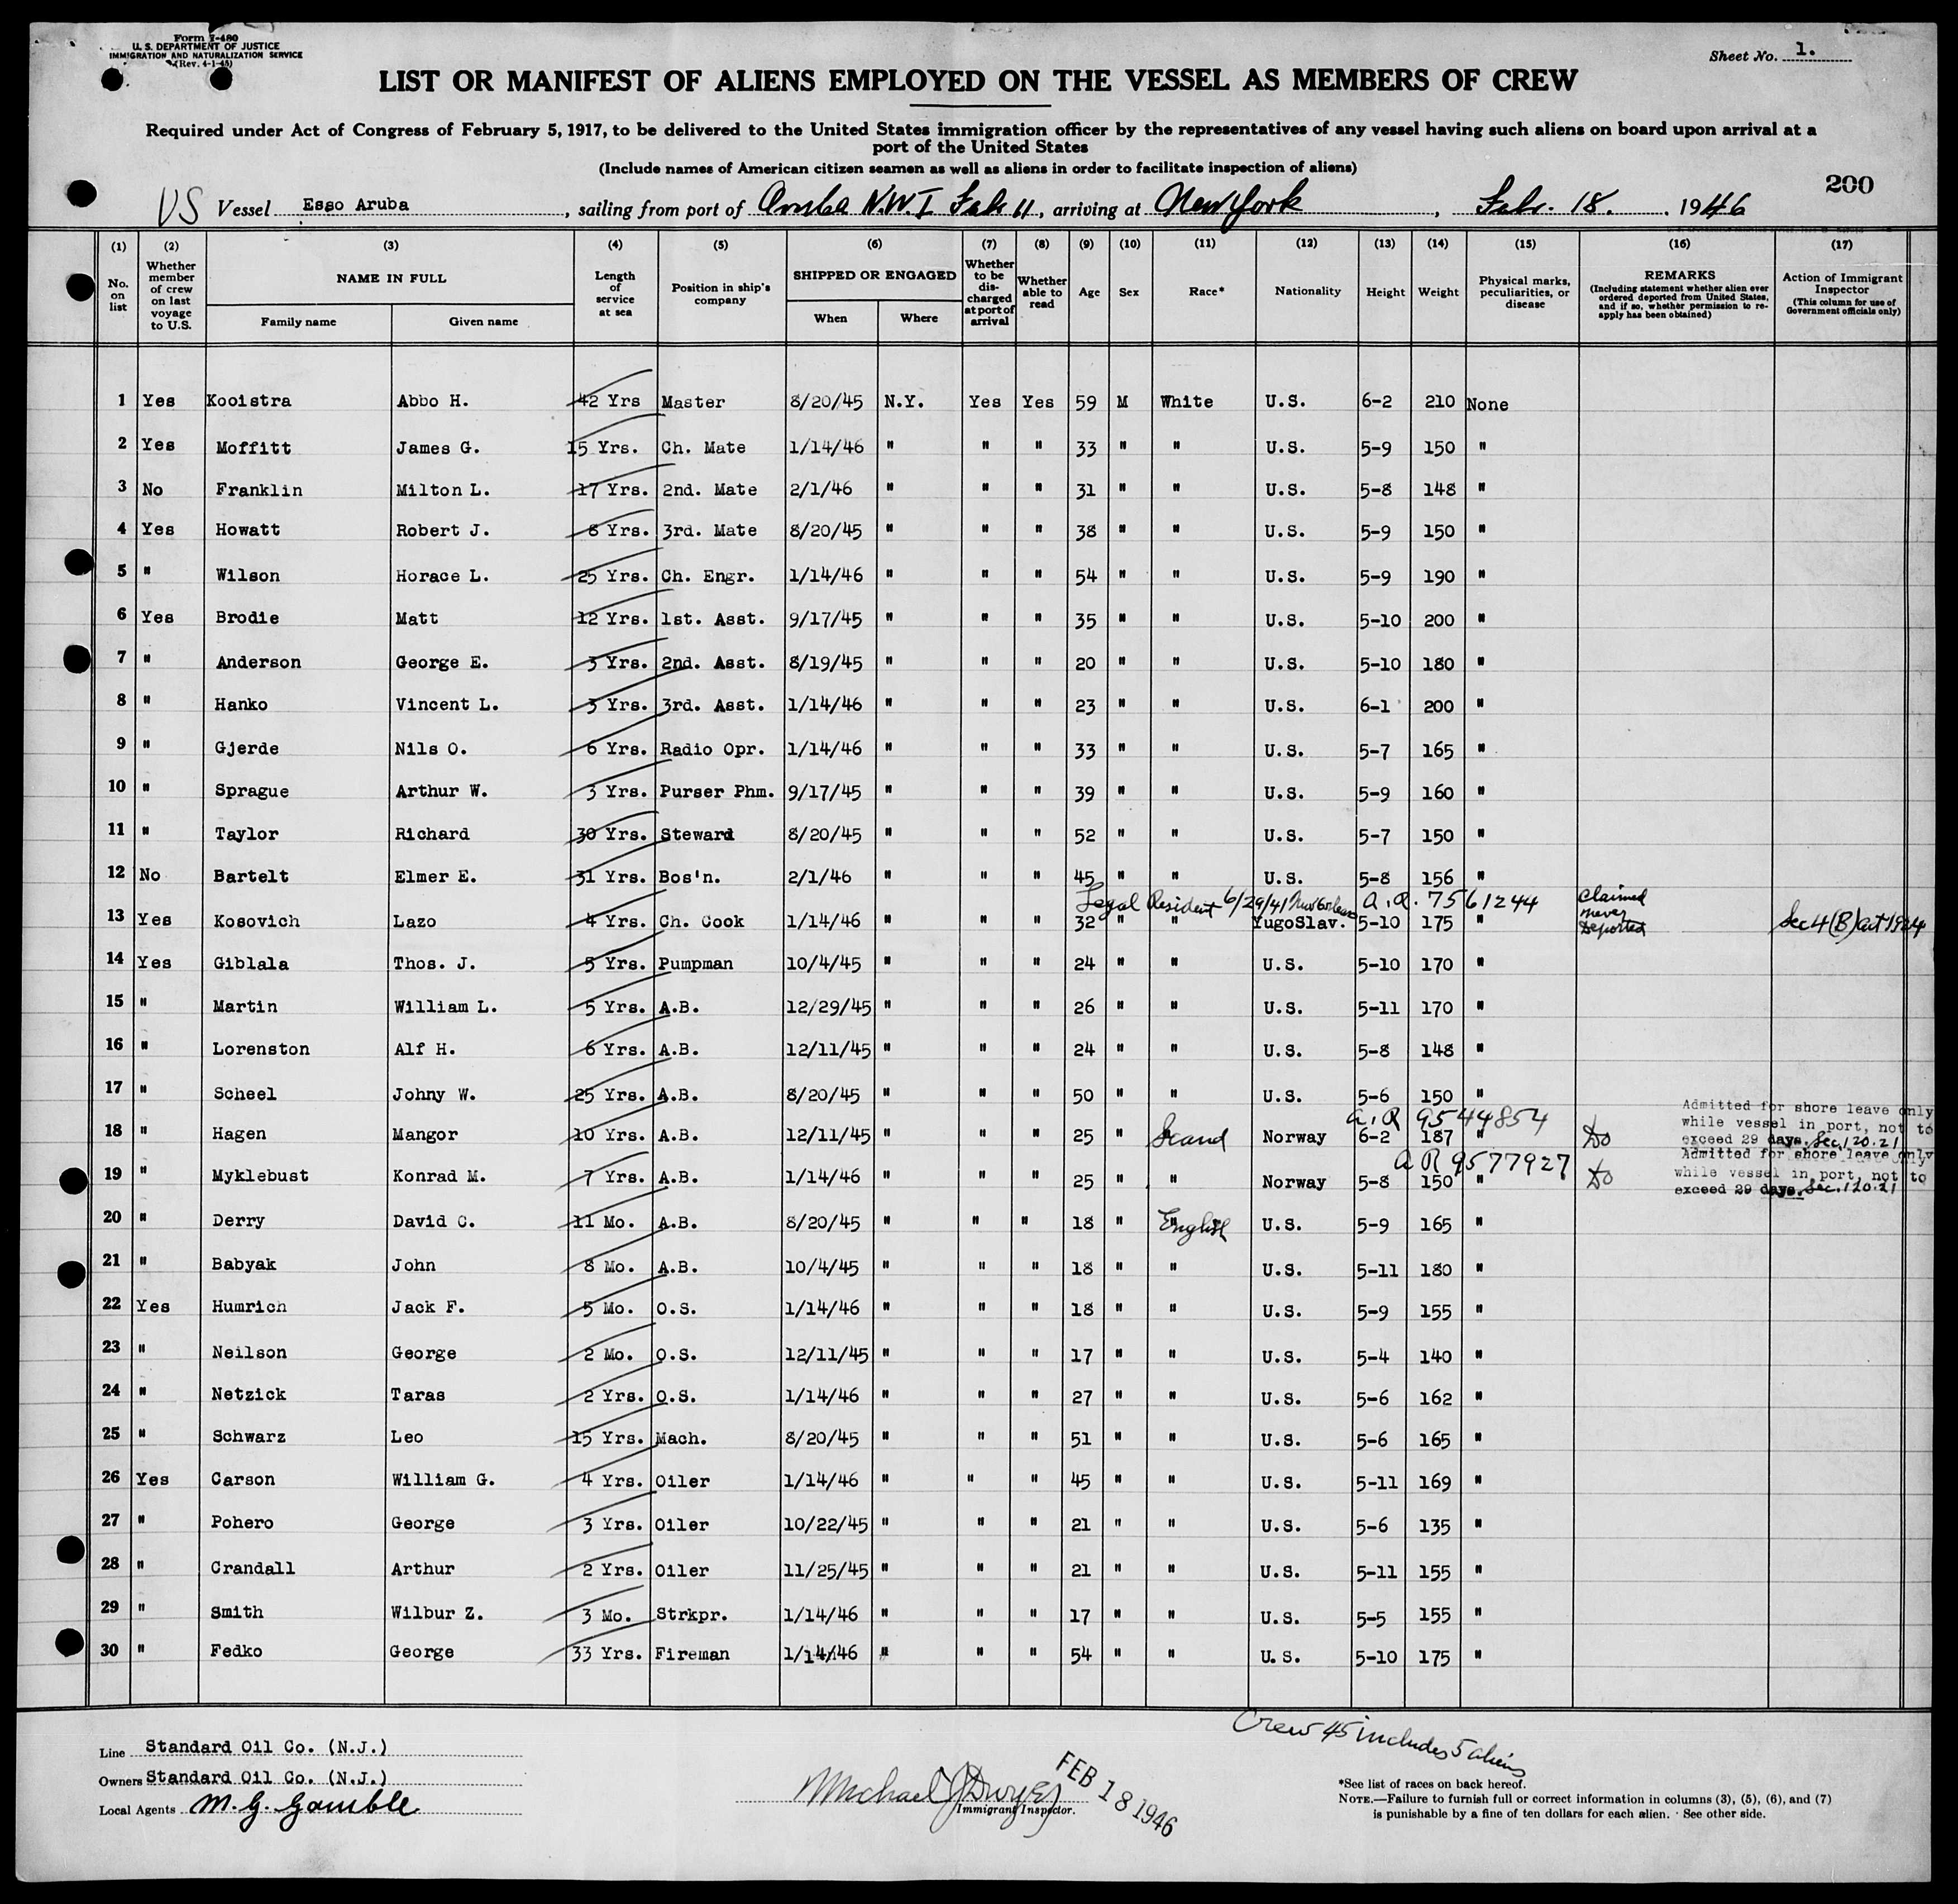 Form I-480
U. S. DEPARTMENT OF JUSTICE
IMMIGRATION AND NATURALIZATION SERVICE
(Rev. 4-1-45)
Sheet No. 1.
LIST OR MANIFEST OF ALIENS EMPLOYED ON THE VESSEL AS MEMBERS OF CREW
Required under Act of Congress of February 5, 1917, to be delivered to the United States immigration officer by the representatives of any vessel having such aliens on board upon arrival at a
port of the United States
(Include names of American citizen seamen as well as aliens in order to facilitate inspection of aliens)
200
VS Vessel Esso Aruba, sailing from port of Aruba N.W.I Feb 11, arriving at New York, Feb. 18. 1946
(1) (2) (3) (4) (5) (6) (7) (8) (9) (10) (11) (12) (13) (14) (15) (16) (17)
No. on list
Whether member of crew on last voyage to U.S.
NAME IN FULL
Family name
Given name
Length of service at sea
Position in ship's company
SHIPPED OR ENGAGED
When
Where
Whether to be discharged at port of arrival
Whether able to read
Age
Sex
Race*
Nationality
Height
Weight
Physical marks, peculiarities, or disease
REMARKS
(Including statement whether alien ever ordered deported from United States, and if so, whether permission to reapply has been obtained)
Action of Immigrant Inspector
(This column for use of Government officials only)
1 Yes Kooistra Abbo H. 42 Yrs Master 8/20/45 N.Y. Yes Yes 59 M White U.S. 6-2 210 None
2 Yes Moffitt James G. 15 Yrs. Ch. Mate 1/14/46 " " " 33 " " U.S. 5-9 150 "
3 No Franklin Milton L. 17 Yrs. 2nd. Mate 2/1/46 " " " 31 " " U.S. 5-8 148 "
4 Yes Howatt Robert J. 8 Yrs. 3rd. Mate 8/20/45 " " " 38 " " U.S. 5-9 150 "
5 " Wilson Horace L. 25 Yrs. Ch. Engr. 1/14/46 " " " 54 " " U.S. 5-9 190 "
6 Yes Brodie Matt 12 Yrs. 1st. Asst. 9/17/45 " " " 35 " " U.S. 5-10 200 "
7 " Anderson George E. 3 Yrs. 2nd. Asst. 8/19/45 " " " 20 " " U.S. 5-10 180 "
8 " Hanko Vincent L. 3 Yrs. 3rd. Asst. 1/14/46 " " " 23 " " U.S. 6-1 200 "
9 " Gjerde Nils O. 6 Yrs. Radio Opr. 1/14/46 " " " 33 " " U.S. 5-7 165 "
10 " Sprague Arthur W. 3 Yrs. Purser Phm. 9/17/45 " " " 39 " " U.S. 5-9 160 "
11 " Taylor Richard 30 Yrs. Steward 8/20/45 " " " 52 " " U.S. 5-7 150 "
12 No Bartelt Elmer E. 31 Yrs. Bos'n. 2/1/46 " " " 45 " " U.S. 5-8 156 "
Legal Resident 6/29/41 New Orleans A.R. 7561244 Claimed never Deported
13 Yes Kosovich Lazo 4 Yrs. Ch. Cook 1/14/46 " " " 32 " " YugoSlav. 5-10 175 " Sec 4 (B) act 1924
14 Yes Giblala Thos. J. 5 Yrs. Pumpman 10/4/45 " " " 24 " " U.S. 5-10 170 "
15 " Martin William L. 5 Yrs. A.B. 12/29/45 " " " 26 " " U.S. 5-11 170 "
16 " Lorenston Alf H. 6 Yrs. A.B. 12/11/45 " " " 24 " " U.S. 5-8 148 "
17 " Scheel Johny W. 25 Yrs. A.B. 8/20/45 " " " 50 " " U.S. 5-6 150 "
A.R 9544854
18 " Hagen Mangor 10 Yrs. A.B. 12/11/45 " " " 25 " Scand Norway 6-2 187 " Do Admitted for shore leave only while vessel in port, not to exceed 29 days. Sec. 120.21
A R 9577927
19 " Myklebust Konrad M. 7 Yrs. A.B. 1/14/46 " " " 25 " " Norway 5-8 150 " Do Admitted for shore leave only while vessel in port, not to exceed 29 days. Sec. 120.21
20 " Derry David C. 11 Mo. A.B. 8/20/45 " " " 18 " English U.S. 5-9 165 "
21 " Babyak John 8 Mo. A.B. 10/4/45 " " " 18 " " U.S. 5-11 180 "
22 Yes Humrich Jack F. 5 Mo. O.S. 1/14/46 " " " 18 " " U.S. 5-9 155 "
23 " Neilson George 2 Mo. O.S. 12/11/45 " " " 17 " " U.S. 5-4 140 "
24 " Netzick Taras 2 Yrs. O.S. 1/14/46 " " " 27 " " U.S. 5-6 162 "
25 " Schwarz Leo 15 Yrs. Mach. 8/20/45 " " " 51 " " U.S. 5-6 165 "
26 Yes Carson William G. 4 Yrs. Oiler 1/14/46 " " " 45 " " U.S. 5-11 169 "
27 " Pohero George 3 Yrs. Oiler 10/22/45 " " " 21 " " U.S. 5-6 135 "
28 " Crandall Arthur 2 Yrs. Oiler 11/25/45 " " " 21 " " U.S. 5-11 155 "
29 " Smith Wilbur Z. 3 Mo. Strkpr. 1/14/46 " " " 17 " " U.S. 5-5 155 "
30 " Fedko George 33 Yrs. Fireman 1/14/46 " " " 54 " " U.S. 5-10 175 "
Crew 45 includes 5 aliens
Line Standard Oil Co. (N.J.)
Owners Standard Oil Co. (N.J.)
Local Agents M. G. Gamble
Michael J Dwyer
Immigrant Inspector.
FEB 18 1946
*See list of races on back hereof.
NOTE.—Failure to furnish full or correct information in columns (3), (5), (6), and (7)
is punishable by a fine of ten dollars for each alien. See other side.